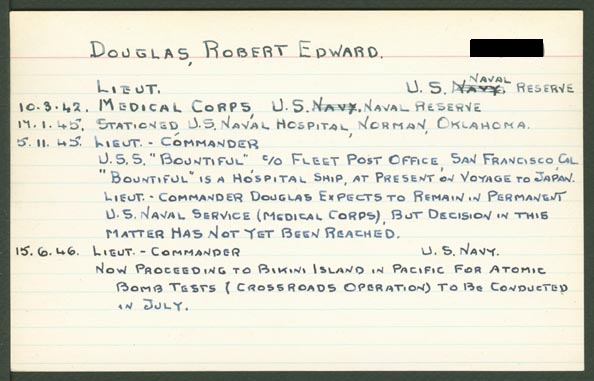 DOUGLAS, ROBERT EDWARD.
LIEUT. U.S. NAVY. NAVAL RESERVE
10.3.42. MEDICAL CORPS, U.S. NAVY. NAVAL RESERVE
17.1.45. STATIONED U.S. NAVAL HOSPITAL, NORMAN, OKLAHOMA.
5.11.45. LIEUT. - COMMANDER
U.S.S. "BOUNTIFUL" C/O FLEET POST OFFICE, SAN FRANCISCO, CAL.
"BOUNTIFUL" IS A HOSPITAL SHIP, AT PRESENT ON VOYAGE TO JAPAN.
LIEUT. - COMMANDER DOUGLAS EXPECTS TO REMAIN IN PERMANENT
U.S. NAVAL SERVICE (MEDICAL CORPS), BUT DECISION IN THIS
MATTER HAS NOT YET BEEN REACHED.
15.6.46. LIEUT. - COMMANDER U.S. NAVY.
NOW PROCEEDING TO BIKINI ISLAND IN PACIFIC FOR ATOMIC
BOMB TESTS (CROSSROADS OPERATION) TO BE CONDUCTED
IN JULY.